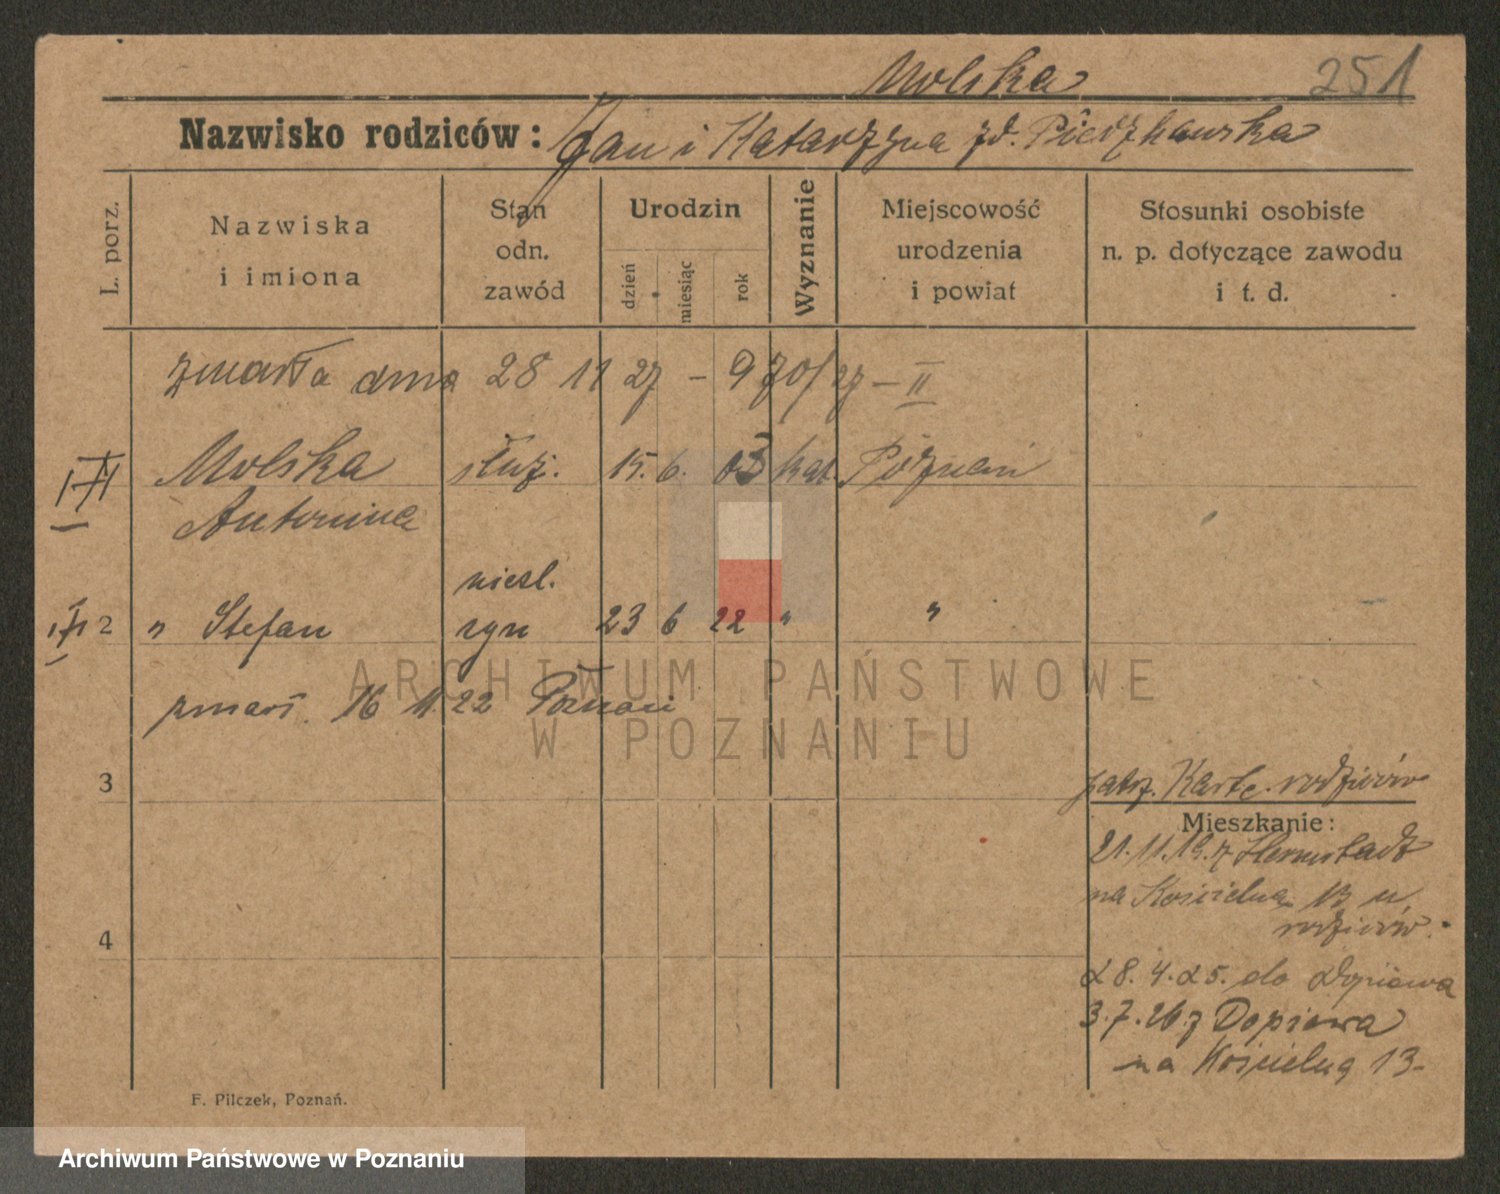 Molska 251
Nazwisko rodziców: Jan i Katarzyna zd. Piedzkowska
L. porz.
Nazwiska
i imiona
Stan
odn.
zawód
Urodzin
dzień
miesiąc
rok
Wyznanie
Miejscowość
urodzenia
i powiat
Stosunki osobiste
n. p. dotyczące zawodu
i t. d.
zmarła dnia 28 11 27 – 970/27 – II
Molska służ. 15. 6. 03 kat. Poznań
Antonina
nieśl.
2 " Stefan syn 23 6 22 " "
zmarł. 16 11 22 Poznań
ARCHIWUM PAŃSTWOWE
W POZNANIU
3
patrz. Kartę. rodziców
Mieszkanie:
21. 11. 19. z Hernstadt
na Kościelna 13 u
rodziców.
4
28. 4. 25. do Dopiewa
3. 7. 26 z Dopiewa
na Kościelną 13-
F. Pilczek, Poznań.
Archiwum Państwowe w Poznaniu